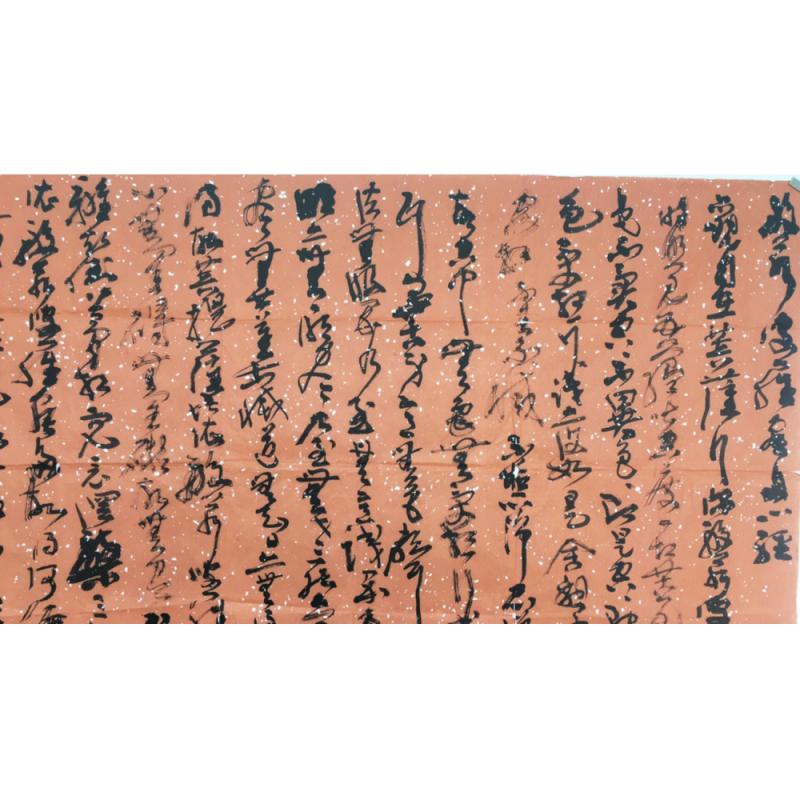 般若波羅蜜多心經
觀自在菩薩行深般若波
時照見五蘊皆空度一切苦厄
色不異空空不異色色即是空空即
色受想行識亦復如是舍利
空相不生不滅不垢不淨不增
故空中無色無受想行識
耳鼻舌身意無色聲香
法無眼界乃至無意識界無
明亦無無明盡乃至無老死亦無
盡無苦集滅道無智亦無得
得故菩提薩埵依般若波羅
心無罣礙無罣礙故無有恐
離顛倒夢想究竟涅槃三
依般若波羅蜜多故得阿耨